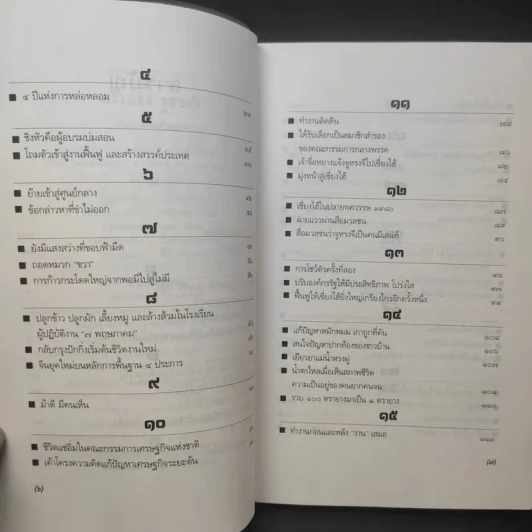 ๔
■ ๔ ปีแห่งการหล่อหลอม
๕
■ ชิงหัวคือผู้อบรมบ่มสอน
■ โถมตัวเข้าสู่งานฟื้นฟู และสร้างสรรค์ประเทศ
๖
■ ย้ายเข้าสู่ศูนย์กลาง
■ ข้อกล่าวหาที่ขำไม่ออก
๗
■ ยังมีแสงสว่างที่ขอบฟ้ามืด
■ ถอดหมวก "ขวา"
■ การก้าวกระโดดใหญ่จากพอมีไปสู่ไม่มี
๘
■ ปลูกข้าว ปลูกผัก เลี้ยงหมู และล้างส้วมในโรงเรียน
ผู้ปฏิบัติงาน "๗ พฤษภาคม"
■ กลับกรุงปักกิ่งเริ่มต้นชีวิตงานใหม่
■ จีนยุคใหม่บนหลักการพื้นฐาน ๔ ประการ
๙
■ ม้าดี มีคนเห็น
๑๐
■ ชีวิตแช่อิ่มในคณะกรรมการเศรษฐกิจแห่งชาติ
■ เค้าโครงความคิดแก้ปัญหาเศรษฐกิจระยะต้น
(๖)
๑๑
■ ทำงานติดดิน ๗๘
■ ได้รับเลือกเป็นสมาชิกสำรอง
ของคณะกรรมการกลางพรรค ๘๐
■ เจ้าจื่อหยางแจ้งจูหรงจีไปเซี่ยงไฮ้ ๘๒
■ มุ่งหน้าสู่เซี่ยงไฮ้ ๘๔
๑๒
■ เซี่ยงไฮ้ในปลายทศวรรษ ๑๙๘๐ ๘๗
■ ฉายแววผ่านสื่อมวลชน
■ สื่อมวลชนว่าจูหรงจีเป็นคนมีเสน่ห์ ๙๐
๑๓
■ การโชว์ตัวครั้งที่สอง
■ ปรับองค์กรรัฐให้มีประสิทธิภาพ โปร่งใส
■ ฟื้นฟูให้เซี่ยงไฮ้ยิ่งใหญ่เกรียงไกรอีกครั้งหนึ่ง
๑๔
■ แก้ปัญหาหมักหมม เกาถูกที่คัน
■ สนใจปัญหาปากท้องของชาวบ้าน
■ เยียวยาแม่น้ำหวงผู่
■ น้ำตาไหลเมื่อเห็นสภาพชีวิต
ความเป็นอยู่ของคนยากคนจน
■ รวบ ๑๐๐ ตรายางมาเป็น ๑ ตรายาง
๑๕
■ ทำงานก่อนและหลัง "งาน" เสมอ
(๗)